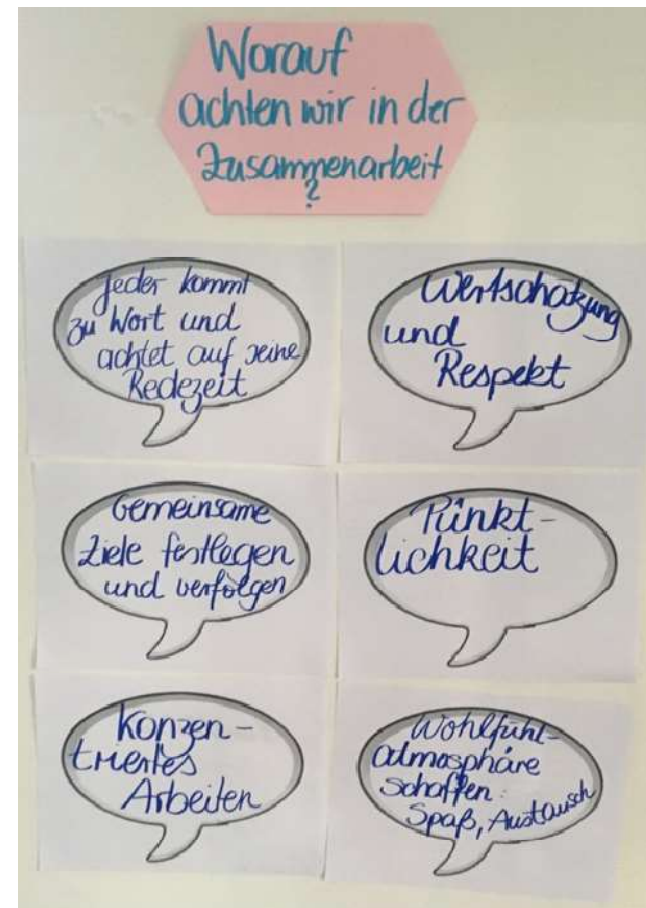 Worauf
achten wir in der
Zusammenarbeit
?
Jeder kommt
zu Wort und
achtet auf seine
Redezeit
Wertschätzung
und
Respekt
Gemeinsame
Ziele festlegen
und verfolgen
Pünkt-
lichkeit
Konzen-
triertes
Arbeiten
Wohlfühl-
atmosphäre
schaffen:
Spaß, Austausch